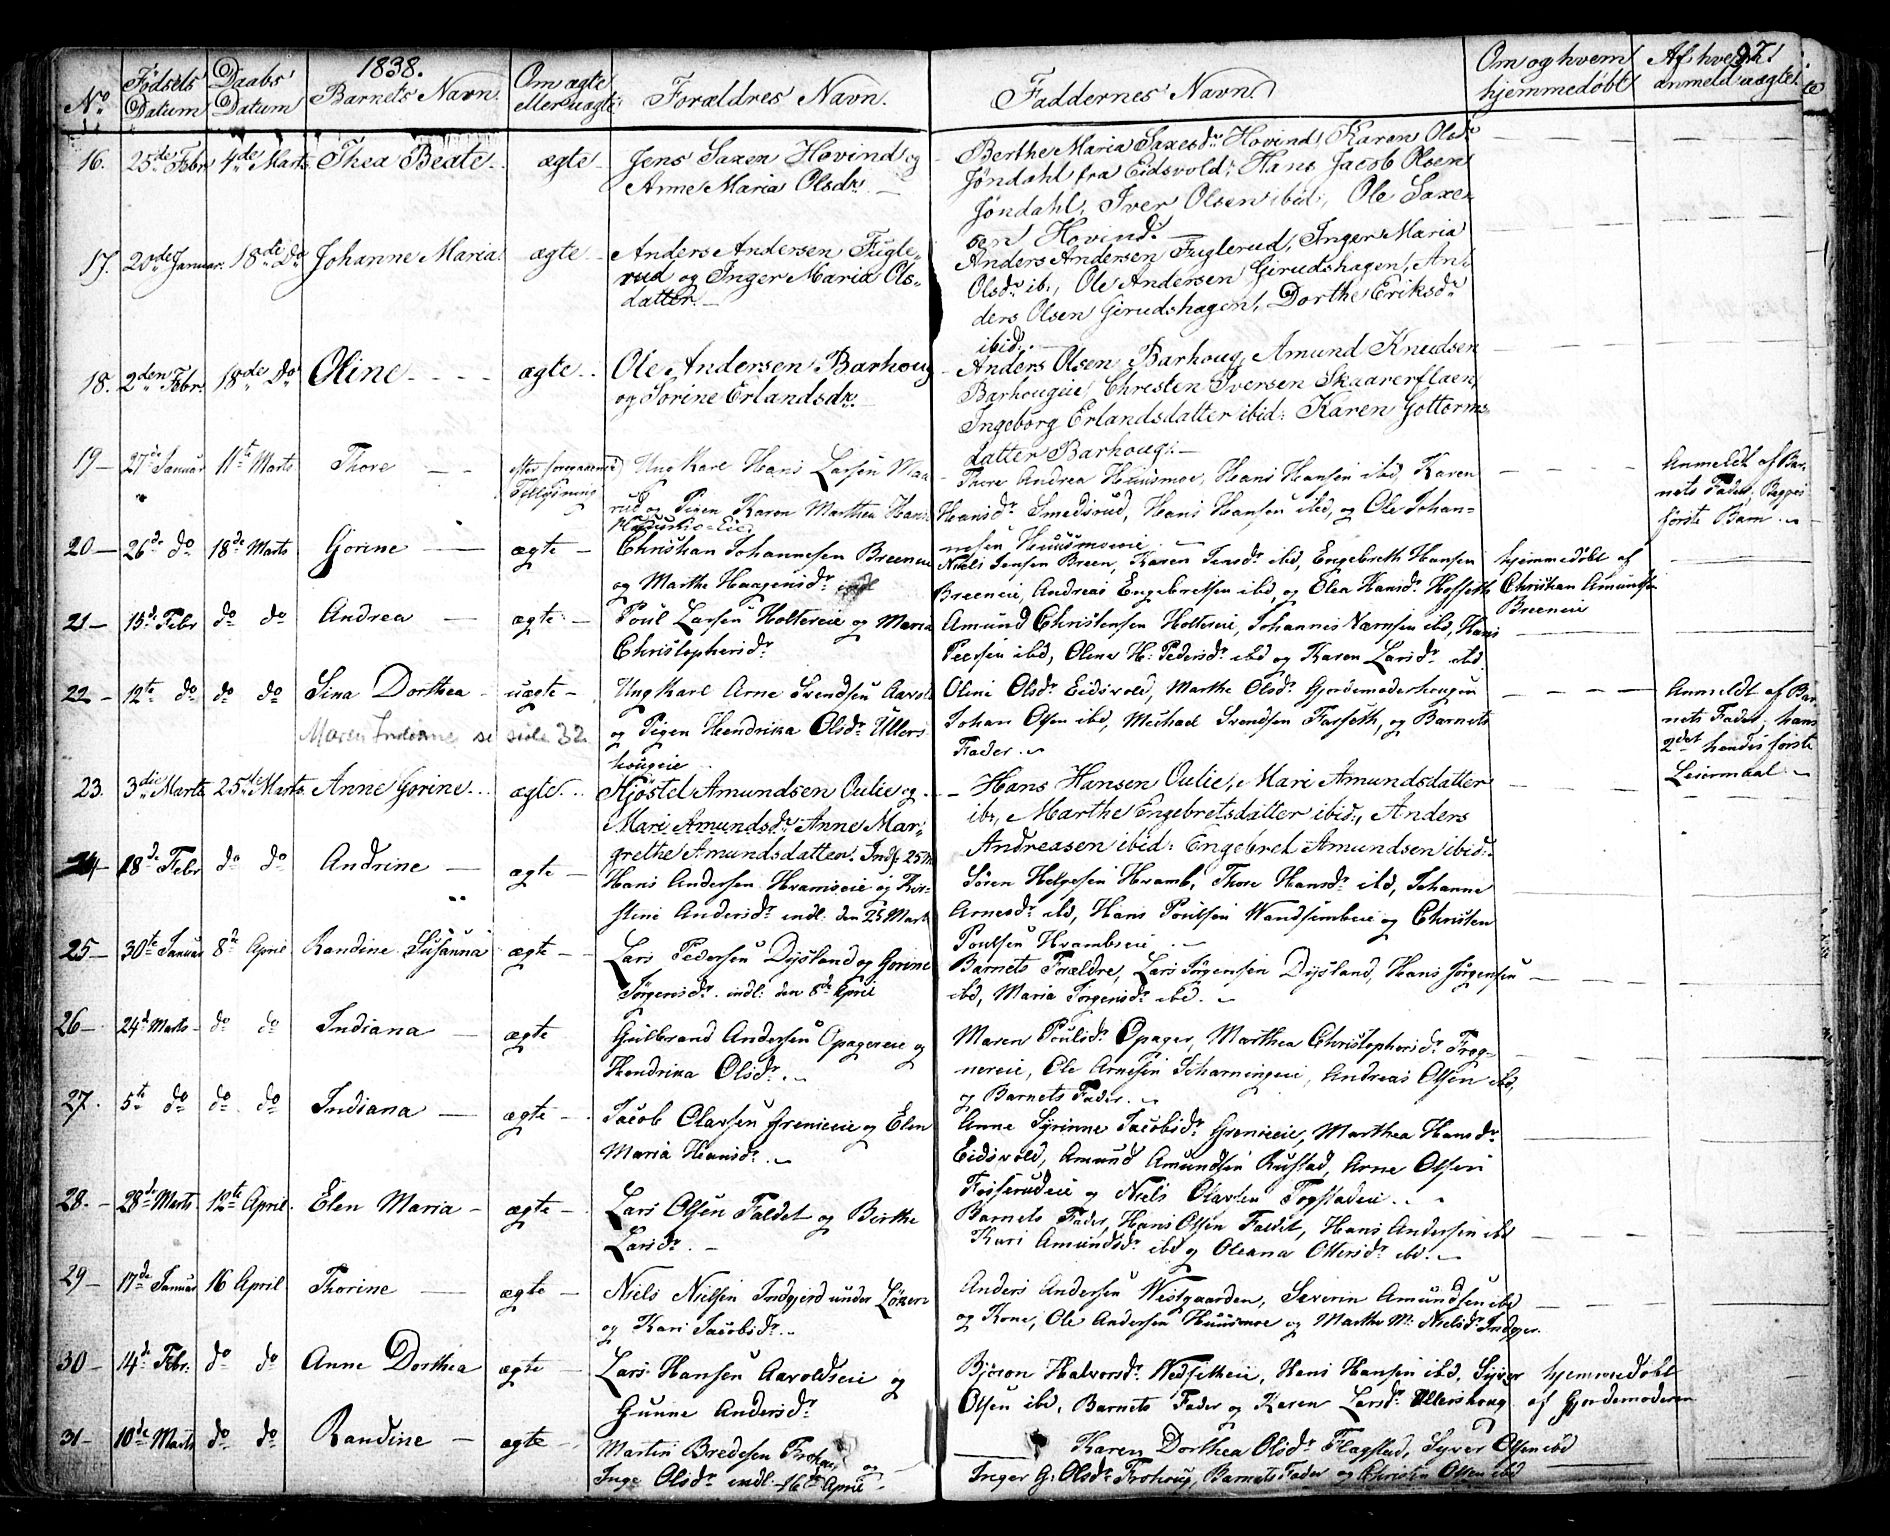 1838.
No. Fødsels Datum Daabs Datum Barnets Navn. Om ægte eller uægte Forældres Navn. Faddernes Navn. Om og hvem hjemmedøbt Af hvem anmeldt uægte.
16. 25de Febr 4de Marts Thea Beate ægte Jens Saxen Hovind og
Anne Maria Olsdr.
Berthe Maria Saxesdr Hovind, Karen Olsdr
Jøndahl fra Eidsvold, Hans Jacob Olsen
Jøndahl, Iver Olsen ibid., Ole Saxe-
sen Hovind.
17. 20de Januar. 18de Do Johanne Maria ægte Anders Andersen Fugle-
rud og Inger Maria Ols-
datter.
Anders Andersen Fuglerud, Inger Maria
Olsdr ib., Ole Andersen Girudshagen, An-
ders Olsen Girudshagen, Dorthe Eriksdr
ibid.
18. 2den Febr. 18de Do Oline ægte Ole Andersen Barhoug
og Sorine Erlandsdr.
Anders Olsen Barhoug, Amund Knudsen
Barhougeie, Christen Iversen Skaarerflaen,
Ingeborg Erlandsdatter ibid: Karen Gottorms-
datter Barhoug.
19 27de Januar 11te Marts Thore efter foregaaende Tillysning Ung Karl Hans Larsen Maa-
rud og Pigen Karen Marthea Hans
Thore Andrea Huusmoe, Hans Hansen ibd, Karen
Hansdr Smedsrud, Hans Hansen ibd, og Ole Johan-
nesen Huusmoeie
Anmeldt af Bar-
nets Fader, Begges
første Barn.
20 26de do 18de Marts Gorine ægte Christian Johannesen Breeneie
og Marthe Haagensdr
Niels Jensen Breen, Karen Jensdr ibd, Engebreth Hansen
Breeneie, Andreas Engebretsen ibd, og Elea Hansdr Hofseth
hjemmedøbt af
Christian Amundsen
Breeneie
21 15de Febr do do Andrea ægte Poul Larsen Holtereie og Maria
Christophersdr
Amund Christensen Holtereie, Johannes Nærnsen ibd, Hans
Peersen ibd, Oline H: Pedersdr ibd og Karen Larsdr ibd.
22 12te do do do Sina Dorthea uægte Ung Karl Arne Svendsen Aavold
og Pigen Hendrika Olsdr Ullers-
hougeie
Maren Indiane se side 32
Oline Olsdr Eidsvold, Marthe Olsdr Gjordemoderhougen
Johan Olsen ibd, Michael Svendsen Farseth, og Barnets
Fader.
Anmeldt af Bar-
nets Fader, hans
2det hendes første
Leiermaal
23. 3die Marts 25de Marts Anne Gorine ægte Kjöstel Amundsen Oulie og
Mari Amundsdr Anne Mar-
grethe Amundsdatter. Indl: 25 M
Hans Hansen Oulie, Mari Amundsdatter
ib, Marthe Engebretsdatter ibid., Anders
Andreasen ibid: Engebret Amundsen ibid.
24 18de Febr do do Andrine ægte Hans Andersen Hramseie og Kir-
stine Andersdr indl. den 25 Marts
Søren Helgesen Hramb, Thore Hansdr ibd, Johanne
Arnesdr ibd, Hans Poulsen Wandsembeie og Christen
Poulsen Hrambseie
25 30te Januar 8de April Randine Susanna ægte Lars Pedersen Dysland og Gorine
Jørgensdr. indl: den 8de April
Barnets Forældre, Lars Jørgensen Dysland, Hans Jørgensen
ibd, Maria Jørgensdr ibd.
26 24de Marts do do Indiana ægte Gulbrand Andersen Opagereie og
Hendrika Olsdr.
Maren Poulsdr Opager, Marthea Christophersdr Frog-
nereie, Ole Arnesen Scharningeie, Andreas Olsen ibd,
og Barnets Fader.
27. 5te do do do Indiana ægte Jacob Olavsen Grenieeie og Elen
Maria Hansdr.
Anne Syrinne Jacobsdr Grenieeie, Marthea Hansdr
Eidsvold, Amund Amundsen Rustad, Arne Olsen
Fosserudeie og Niels Olavsen Fogstadeie.
28. 28de Marts 12te April Elen Maria ægte Lars Olsen Faldet og Birthe
Larsdr.
Barnets Fader, Hans Olsen Faldet, Hans Andersen ibd
Kari Amundsdr ibd og Oleana Ottersdr ibd.
29 17de Januar 16 April Thorine ægte Niels Nielsen Indgjerd under Løken
og Kari Jacobsdr.
Anders Andersen Westgaarden, Severin Amundsen ibd
og Kone, Ole Andersen Huusmoe og Marthe M: Nielsdr Indgjer.
30 14de Febr. do do Anne Dorthea ægte Lars Hansen Aavoldseie og
Gunne Andersdr
Björon Halvorsdr Nedsetheie, Hans Hansen ibd, Syver
Olsen ibd, Barnets Fader og Karen Larsdr Ullershoug
hjemmedøbt
af Gjordemoderen
31 10de Marts do do Randine ægte Martin Bredesen Frohoug og
Inge Olsdr indl. 16de April
Karen Dorthea Olsdr Flagstad, Syver Olsen ibd
Inger G: Olsdr Frohoug, Barnets Fader og Christen Olsen ibd